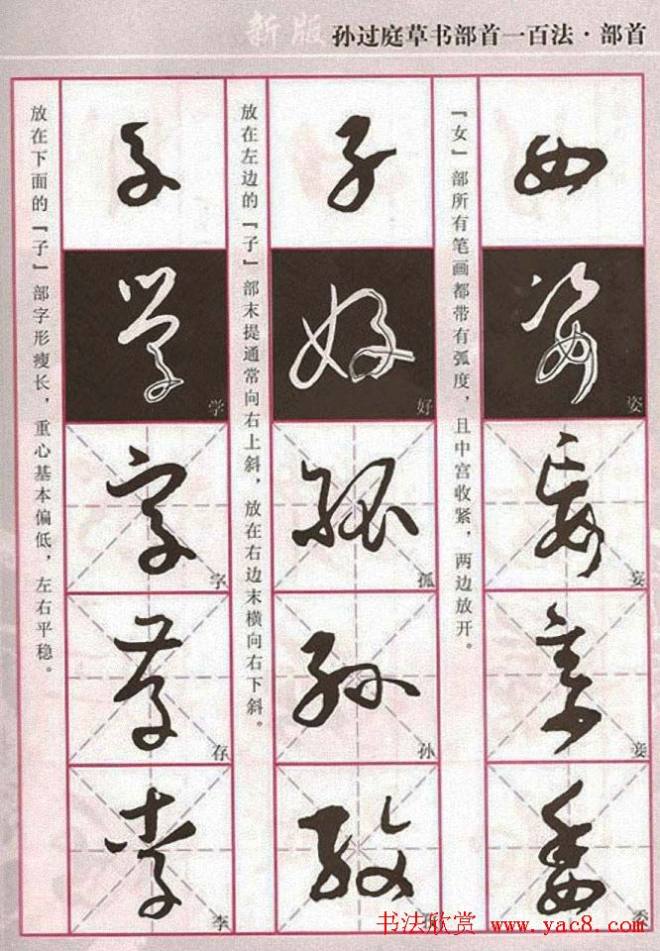 新版 孙过庭草书部首一百法·部首
『女』部所有笔画都带有弧度，且中宫收紧，两边放开。
姿
妄
妾
委
放在左边的『子』部末提通常向右上斜，放在右边末横向右下斜。
好
孤
孙
放在下面的『子』部字形瘦长，重心基本偏低，左右平稳。
学
字
存
李
书法欣赏 www.yac8.com